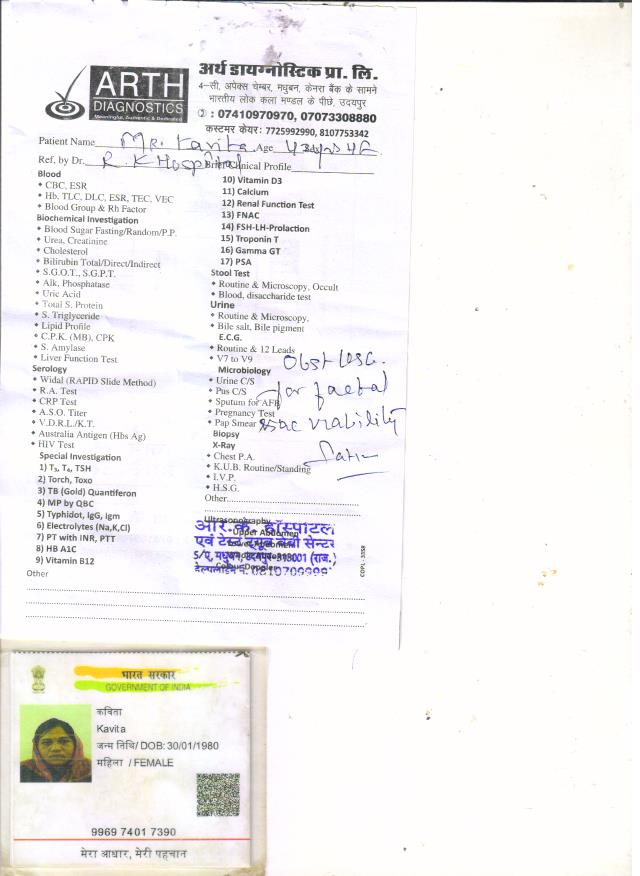 ARTH
DIAGNOSTICS
Meaningful, Authentic & Dedicated
अर्थ डायग्नोस्टिक प्रा. लि.
4-सी, अपेक्स चेम्बर, मधुबन, केनरा बैंक के सामने
भारतीय लोक कला मण्डल के पीछे, उदयपुर
: 07410970970, 07073308880
कस्टमर केयर: 7725992990, 8107753342
Patient Name Mr. Kavita Age
Ref, by Dr. R. K Hospital Brief Clinical Profile
Blood
CBC, ESR
Hb, TLC, DLC, ESR, TEC, VEC
Blood Group & Rh Factor
Biochemical Investigation
Blood Sugar Fasting/Random/P.P.
Urea, Creatinine
Cholesterol
Bilirubin Total/Direct/Indirect
S.G.O.T., S.G.P.T.
Alk, Phosphatase
Uric Acid
Total S. Protein
S. Triglyceride
Lipid Profile
C.P.K. (MB), CPK
S. Amylase
Liver Function Test
Serology
Widal (RAPID Slide Method)
R.A. Test
CRP Test
A.S.O. Titer
V.D.R.L./K.T.
Australia Antigen (Hbs Ag)
HIV Test
Special Investigation
1) T₃, T₄, TSH
2) Torch, Toxo
3) TB (Gold) Quantiferon
4) MP by QBC
5) Typhidot, IgG, Igm
6) Electrolytes (Na,K,Cl)
7) PT with INR, PTT
8) HB A1C
9) Vitamin B12
Other
10) Vitamin D3
11) Calcium
12) Renal Function Test
13) FNAC
14) FSH-LH-Prolaction
15) Troponin T
16) Gamma GT
17) PSA
Stool Test
Routine & Microscopy, Occult
Blood, disaccharide test
Urine
Routine & Microscopy.
Bile salt, Bile pigment
E.C.G.
Routine & 12 Leads
V7 to V9
Microbiology
Urine C/S
Pus C/S
Sputum for AFB
Pregnancy Test
Pap Smear
Biopsy
X-Ray
Chest P.A.
K.U.B. Routine/Standing
I.V.P.
H.S.G.
Other
Obst USG.
for faetal
viability
Ultrasonography
Upper Abdomen
Colour Doppler
आर.के. हॉस्पीटल
एवं टेस्ट ट्यूब बेबी सेन्टर
5/ए, मधुबन, उदयपुर-313001 (राज.)
COPL-3358
भारत सरकार
GOVERNMENT OF INDIA
कविता
Kavita
जन्म तिथि/ DOB: 30/01/1980
महिला / FEMALE
9969 7401 7390
मेरा आधार, मेरी पहचान